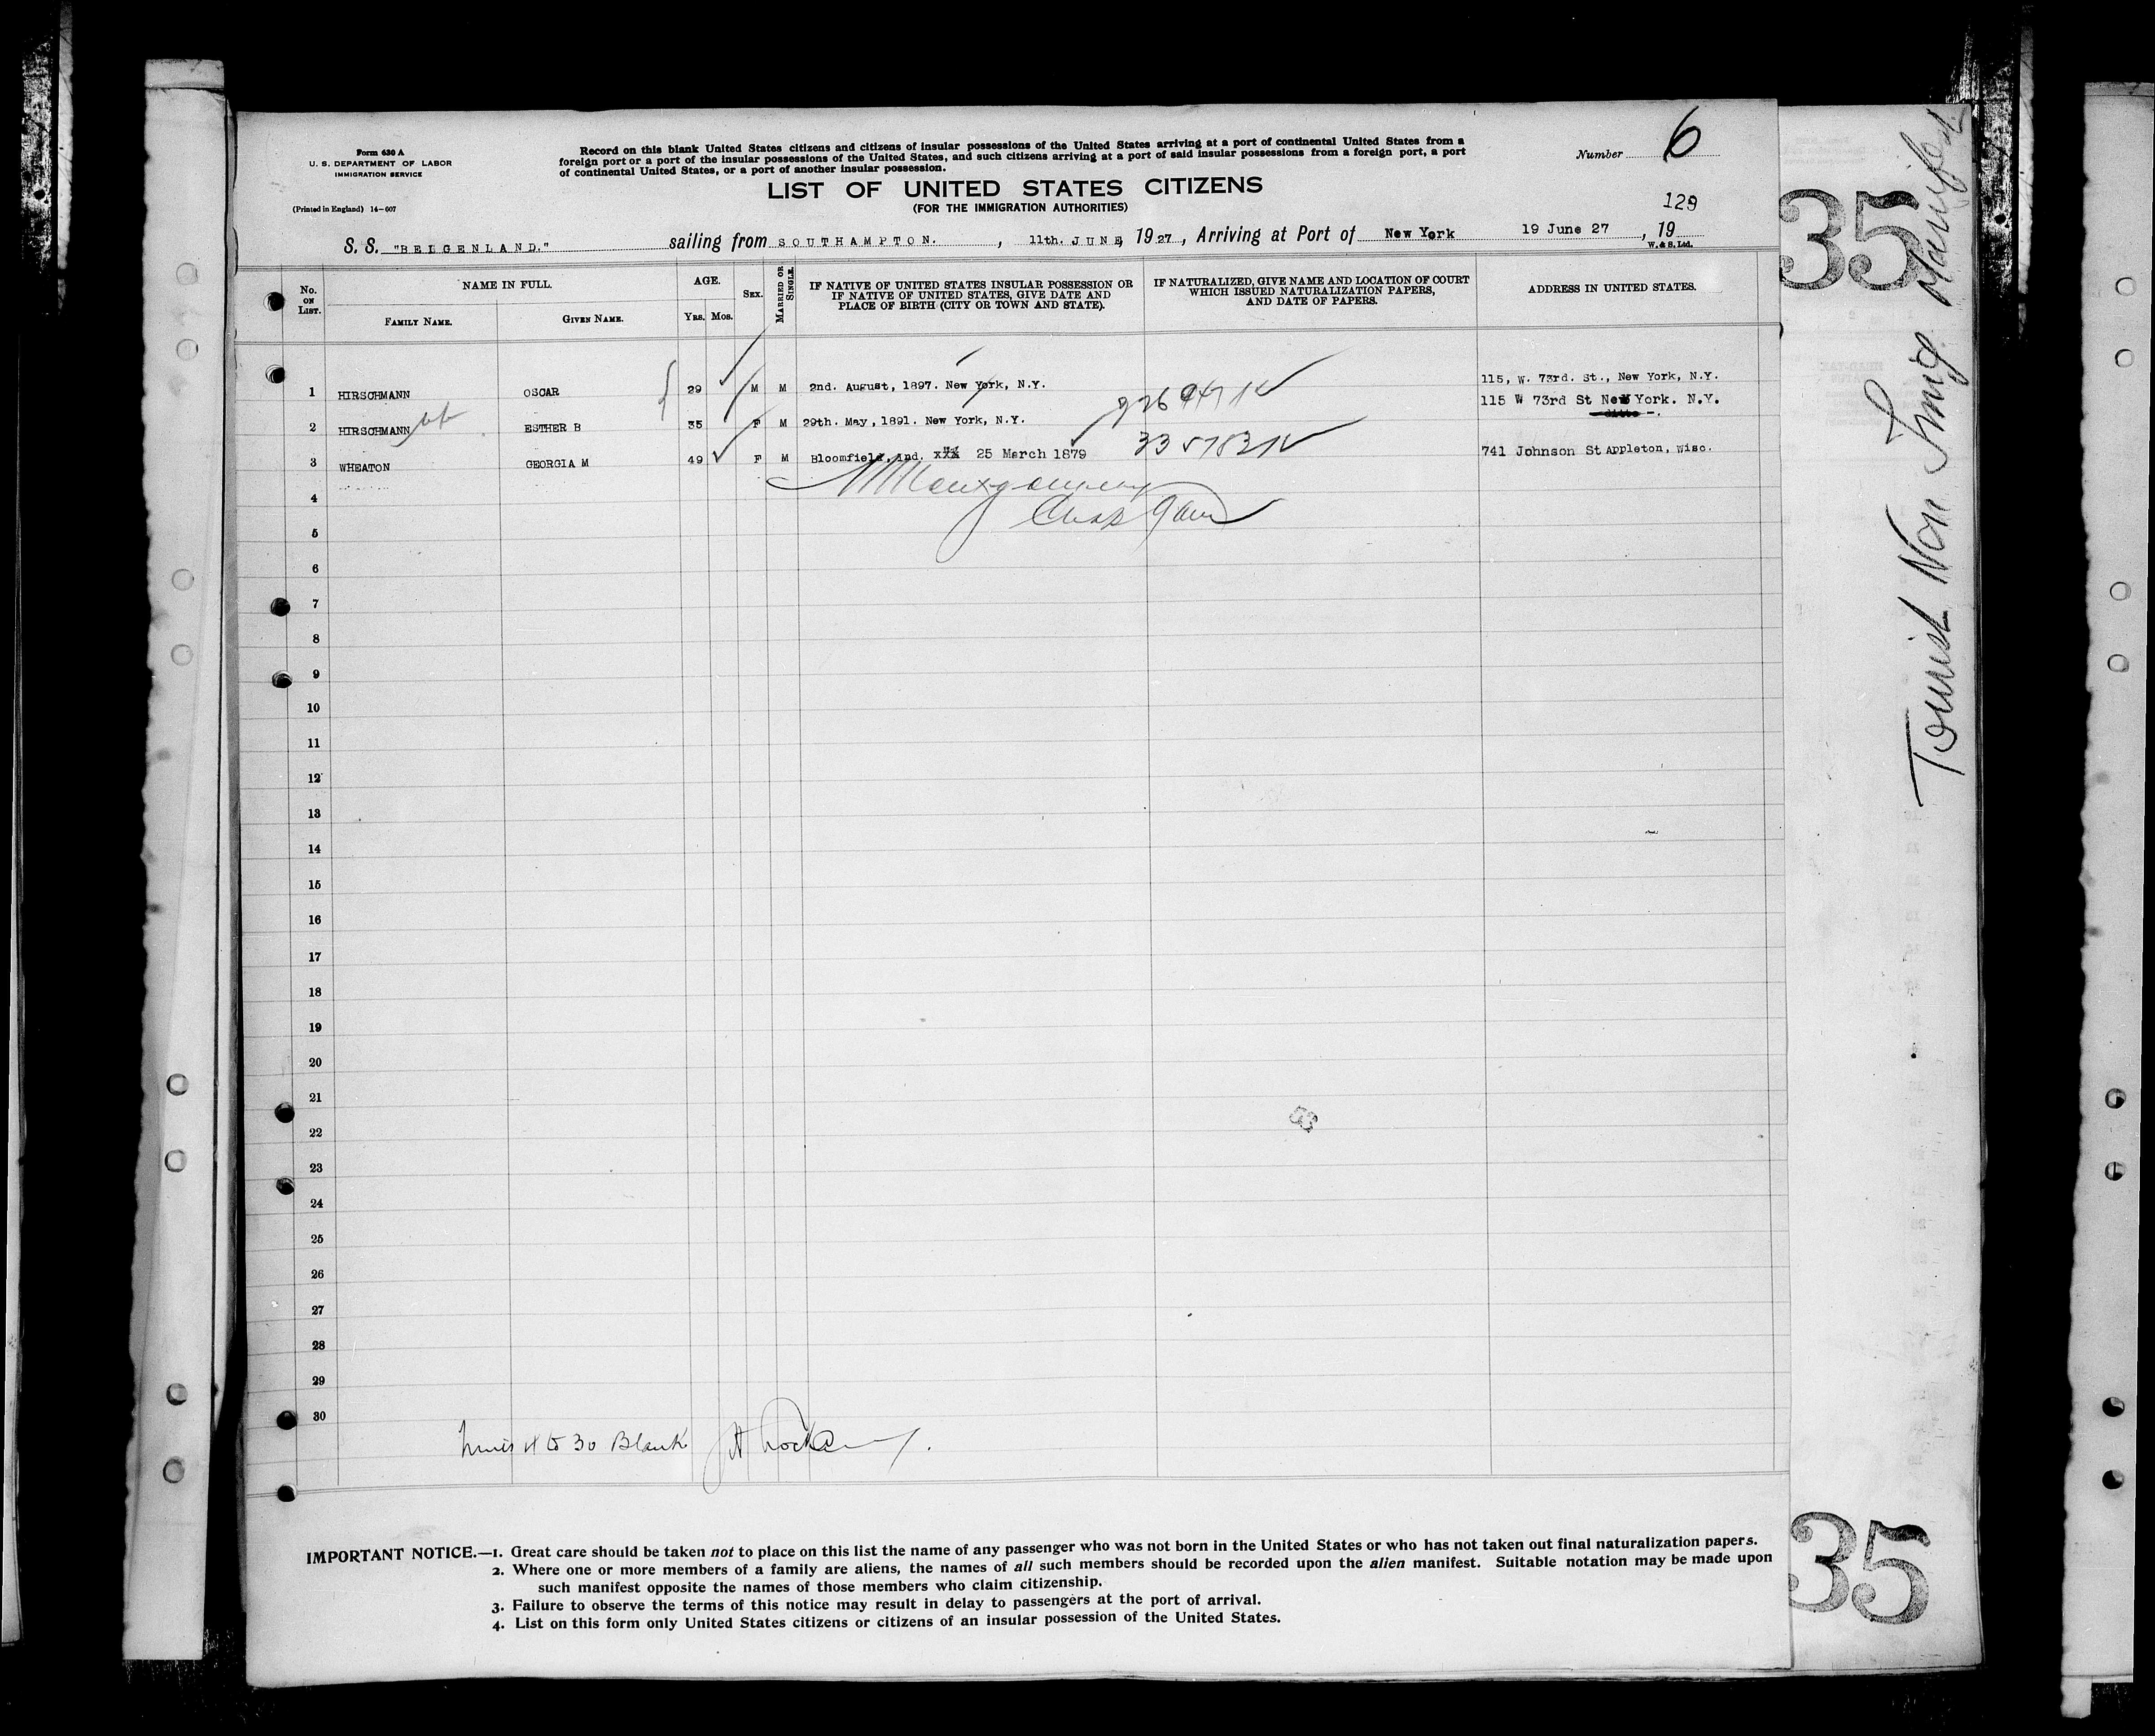 Form 630 A
U. S. DEPARTMENT OF LABOR
IMMIGRATION SERVICE
(Printed in England) 14-607
Record on this blank United States citizens and citizens of insular possessions of the United States arriving at a port of continental United States from a
foreign port or a port of the insular possessions of the United States, and such citizens arriving at a port of said insular possessions from a foreign port, a port
of continental United States, or a port of another insular possession.
Number 6
LIST OF UNITED STATES CITIZENS
(FOR THE IMMIGRATION AUTHORITIES)
129
S. S. "BELGENLAND." sailing from SOUTHAMPTON. , 11th. JUNE, 1927, Arriving at Port of New York 19 June 27, 19
W. & S. Ltd.
No. ON LIST. NAME IN FULL. AGE. SEX. MARRIED OR SINGLE. IF NATIVE OF UNITED STATES INSULAR POSSESSION OR IF NATIVE OF UNITED STATES, GIVE DATE AND PLACE OF BIRTH (CITY OR TOWN AND STATE). IF NATURALIZED, GIVE NAME AND LOCATION OF COURT WHICH ISSUED NATURALIZATION PAPERS, AND DATE OF PAPERS. ADDRESS IN UNITED STATES.
FAMILY NAME. GIVEN NAME. YRS. MOS.
1 HIRSCHMANN OSCAR 29 M M 2nd. August, 1897. New York, N.Y. 115, W. 73rd. St., New York, N.Y.
2 HIRSCHMANN ESTHER B 35 F M 29th. May, 1891. New York, N.Y. 115 W 73rd St New York. N.Y.
ditto -.
3 WHEATON GEORGIA M 49 F M Bloomfield, Ind. xxx 25 March 1879 335783 741 Johnson St Appleton, Wisc.
Montgomery
4
5
6
7
8
9
10
11
12
13
14
15
16
17
18
19
20
21
22
23
24
25
26
27
28
29
30
Lines 4 to 30 Blank
IMPORTANT NOTICE.—1. Great care should be taken not to place on this list the name of any passenger who was not born in the United States or who has not taken out final naturalization papers.
2. Where one or more members of a family are aliens, the names of all such members should be recorded upon the alien manifest. Suitable notation may be made upon
such manifest opposite the names of those members who claim citizenship.
3. Failure to observe the terms of this notice may result in delay to passengers at the port of arrival.
4. List on this form only United States citizens or citizens of an insular possession of the United States.
35
Tourist Non Immig Manifest
35